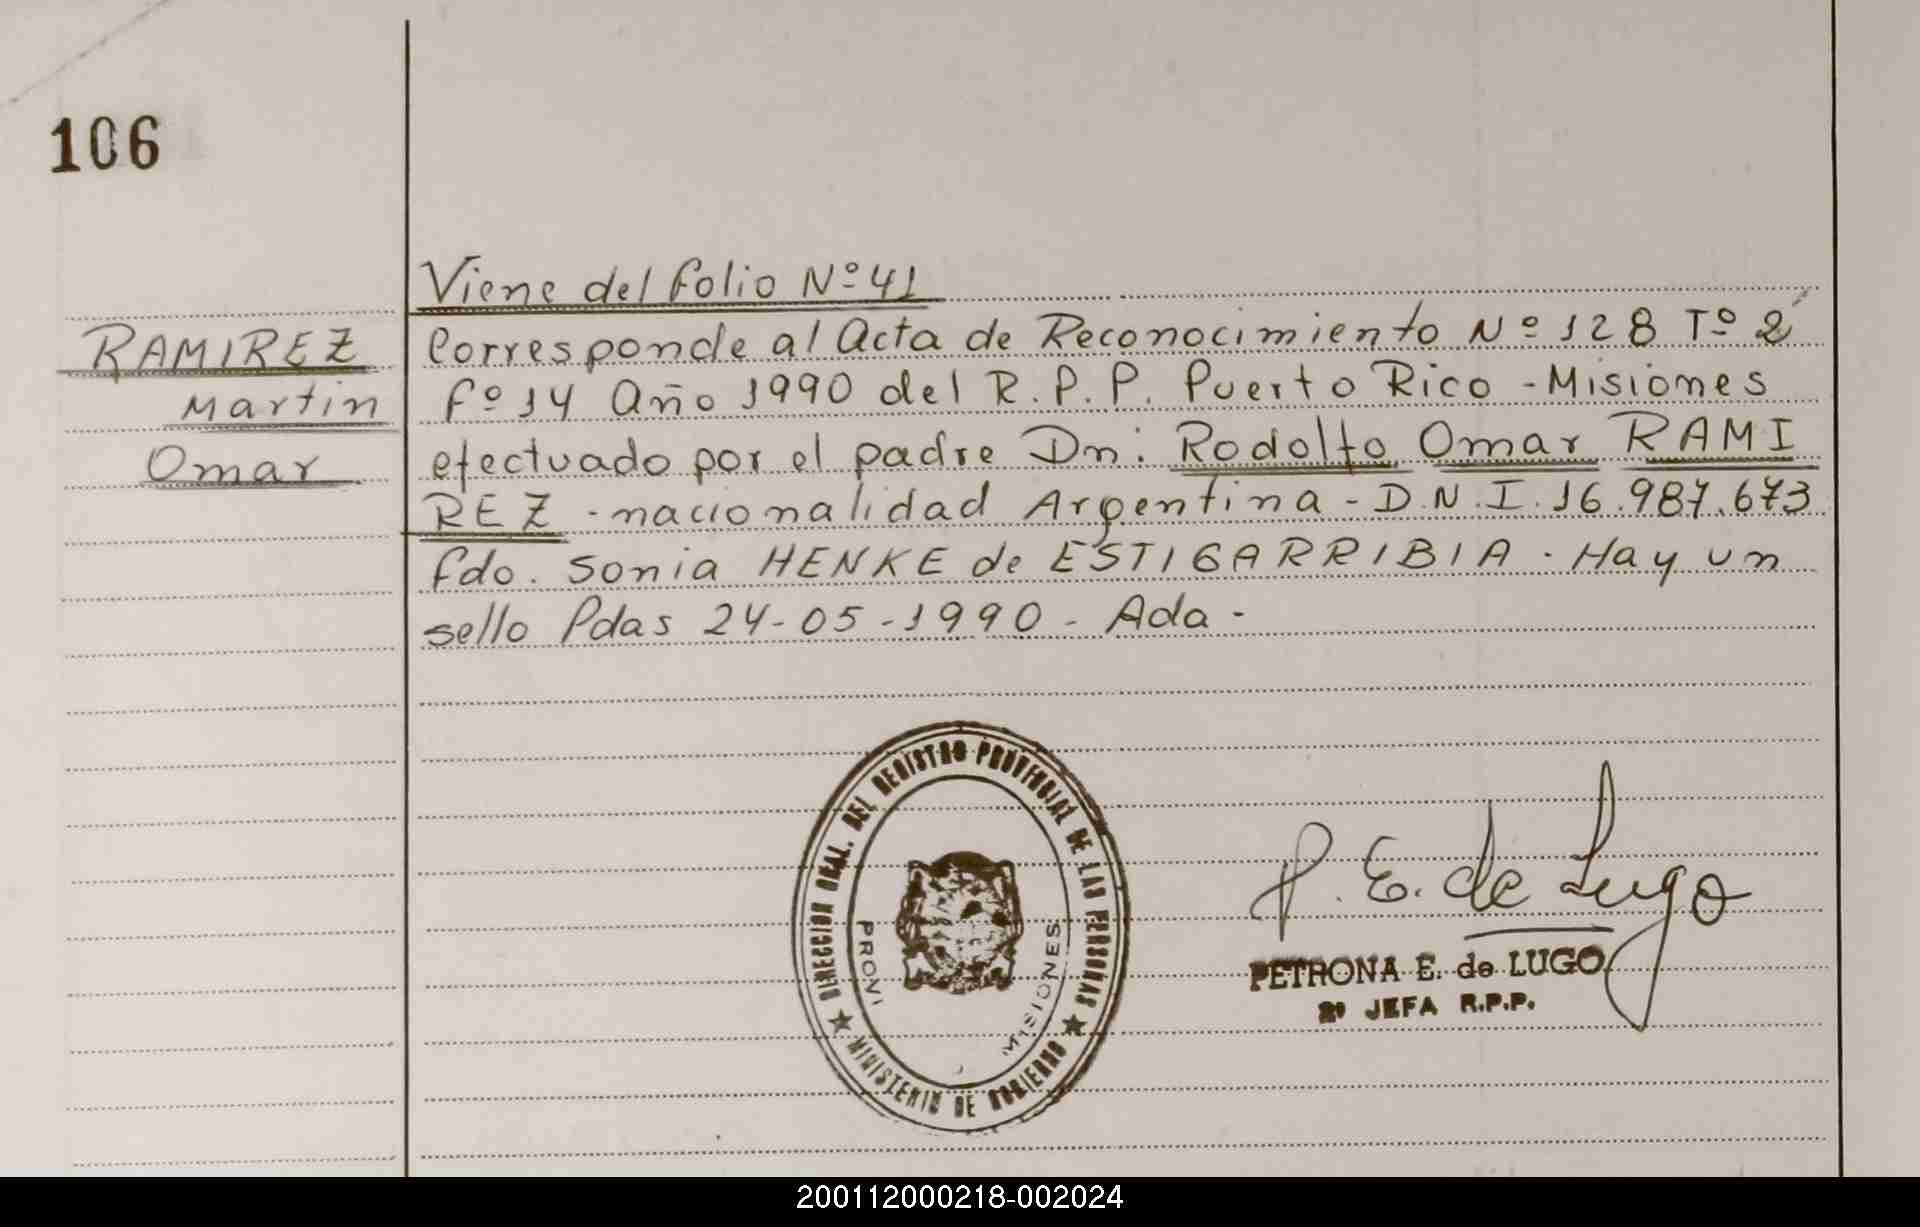 106
Viene del folio Nº 41
RAMIREZ
Martin
Omar
Corresponde al Acta de Reconocimiento Nº 128 Tº 2
fº 14 Año 1990 del R.P.P. Puerto Rico - Misiones
efectuado por el padre Dn: Rodolfo Omar RAMI
REZ - nacionalidad Argentina - D.N.I. 16.987.673
fdo. Sonia HENKE de ESTIGARRIBIA - Hay un
sello Pdas 24-05-1990 - Ada -
DIRECCION GRAL. DEL REGISTRO PROVINCIAL DE LAS PERSONAS
PROVI MISIONES
★ MINISTERIO DE GOBIERNO ★
P. E. de Lugo
PETRONA E. de LUGO
2º JEFA R.P.P.
200112000218-002024